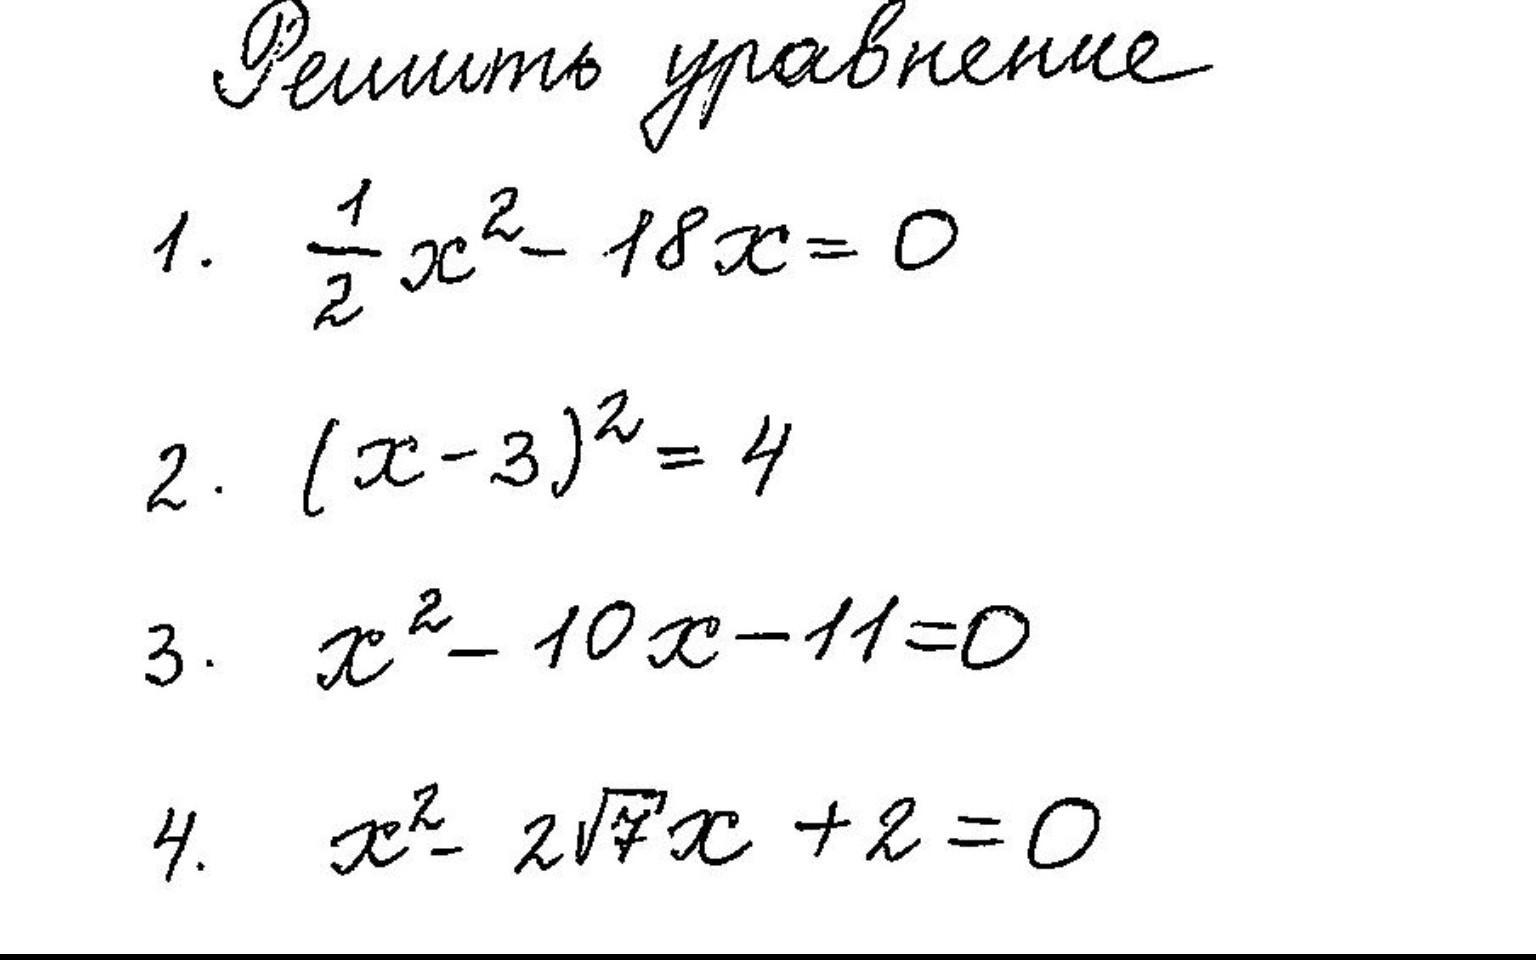 Решить уравнение
1. 1/2 x² - 18x = 0
2. (x - 3)² = 4
3. x² - 10x - 11 = 0
4. x² - 2√7x + 2 = 0